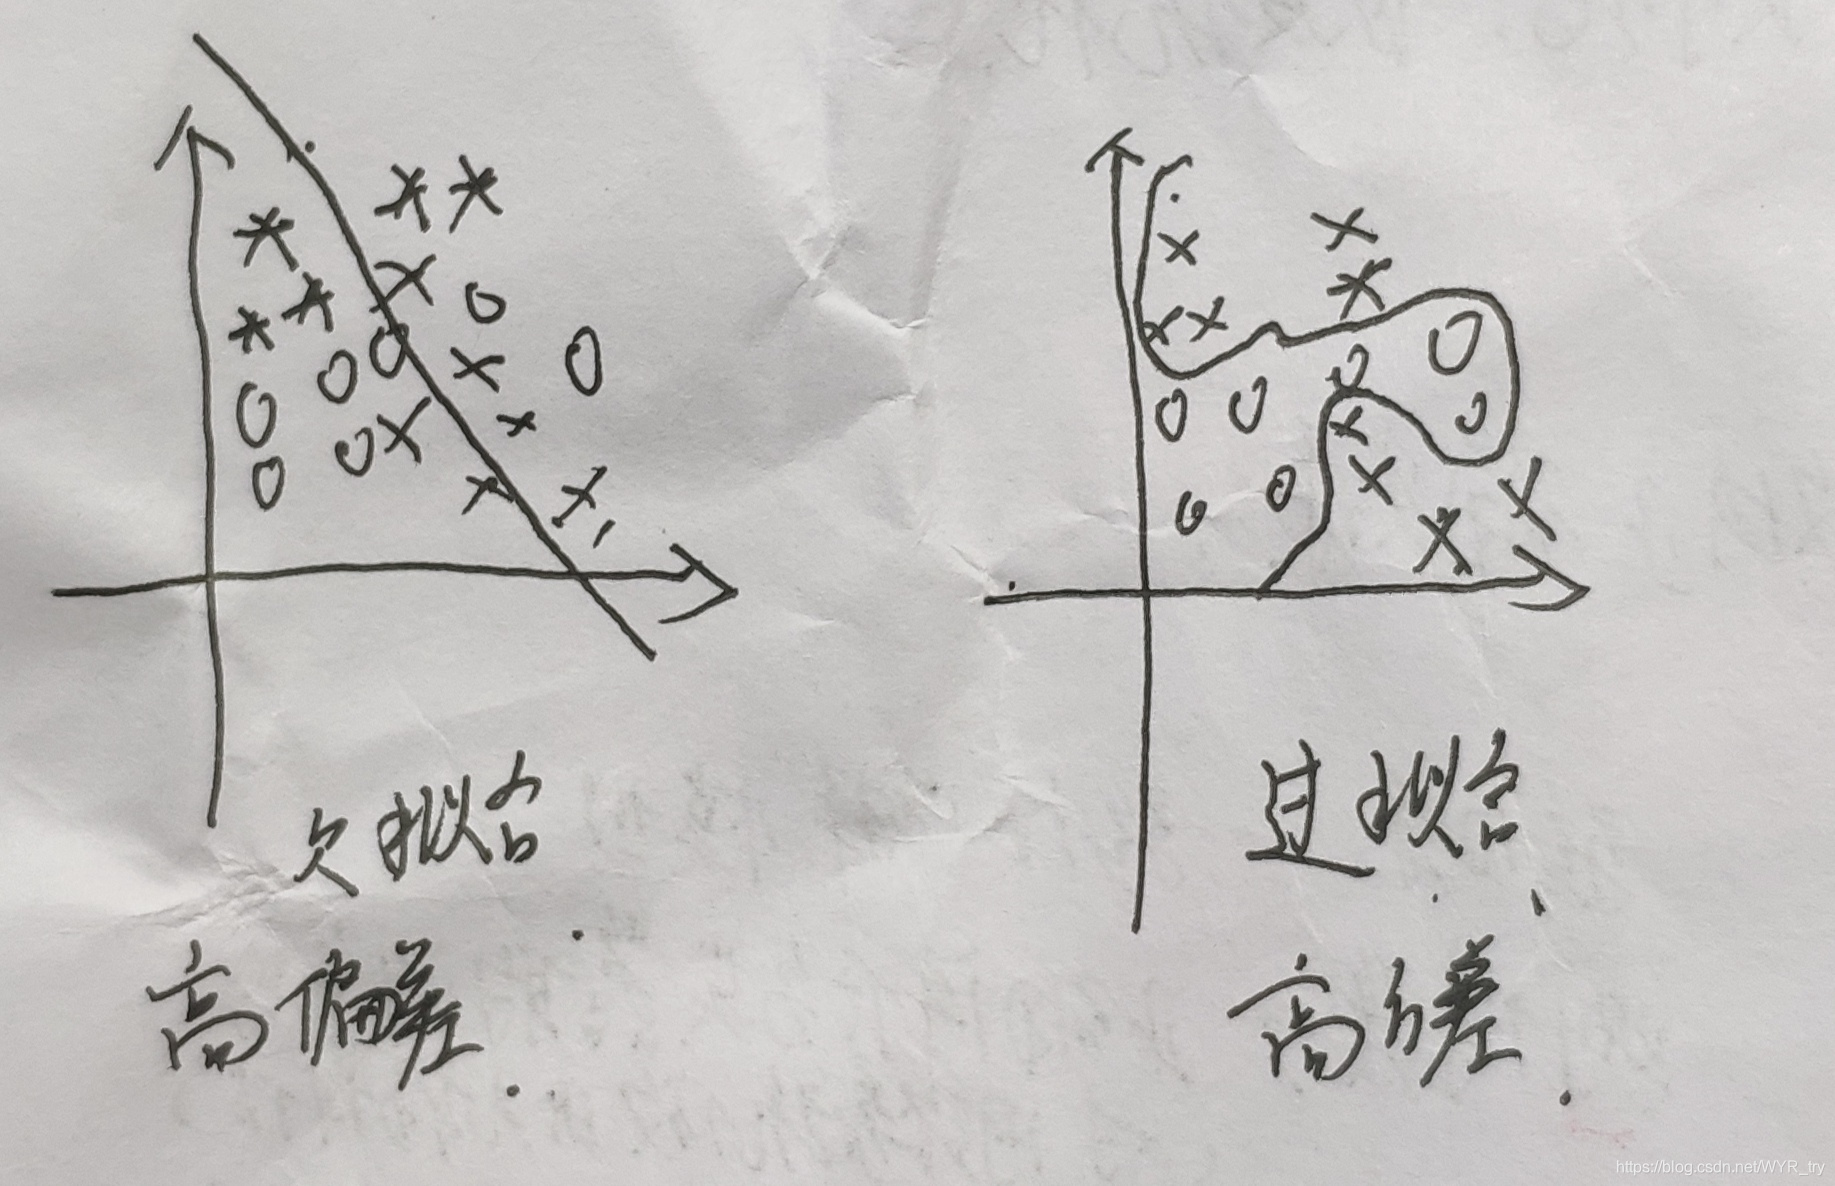 欠拟合
过拟合
高偏差
高方差
https://blog.csdn.net/WYR_try